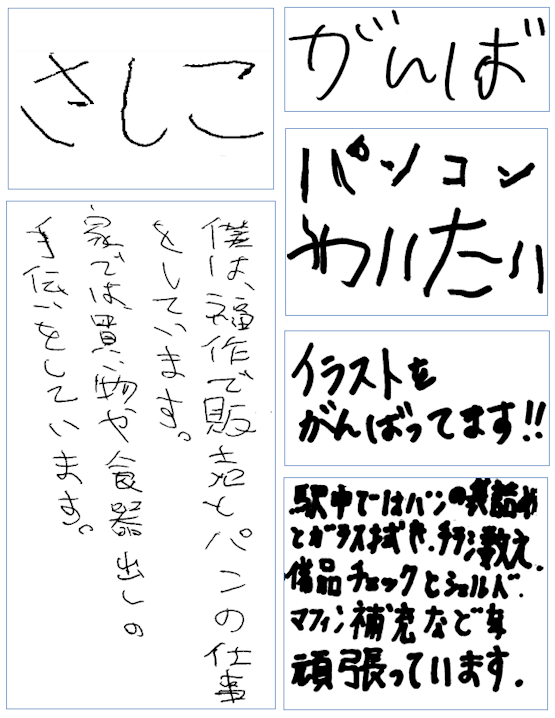 さしこ
僕は、福作で販売とパンの仕事
をしています。
家では、買い物や食器出しの
手伝いをしています。
がんば
パソコン
やりたい
イラストを
がんばってます!!
駅中ではパンの袋詰め
とガラス拭き、チラシ数え、
備品チェックとシェルバ、
マフィン補充などを
頑張っています。